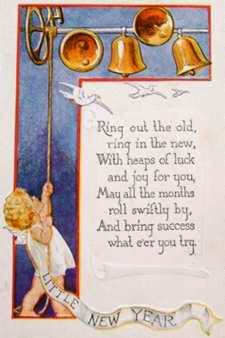 Ring out the old,
ring in the new,
With heaps of luck
and joy for you,
May all the months
roll swiftly by,
And bring success
what e'er you try.
LITTLE NEW YEAR